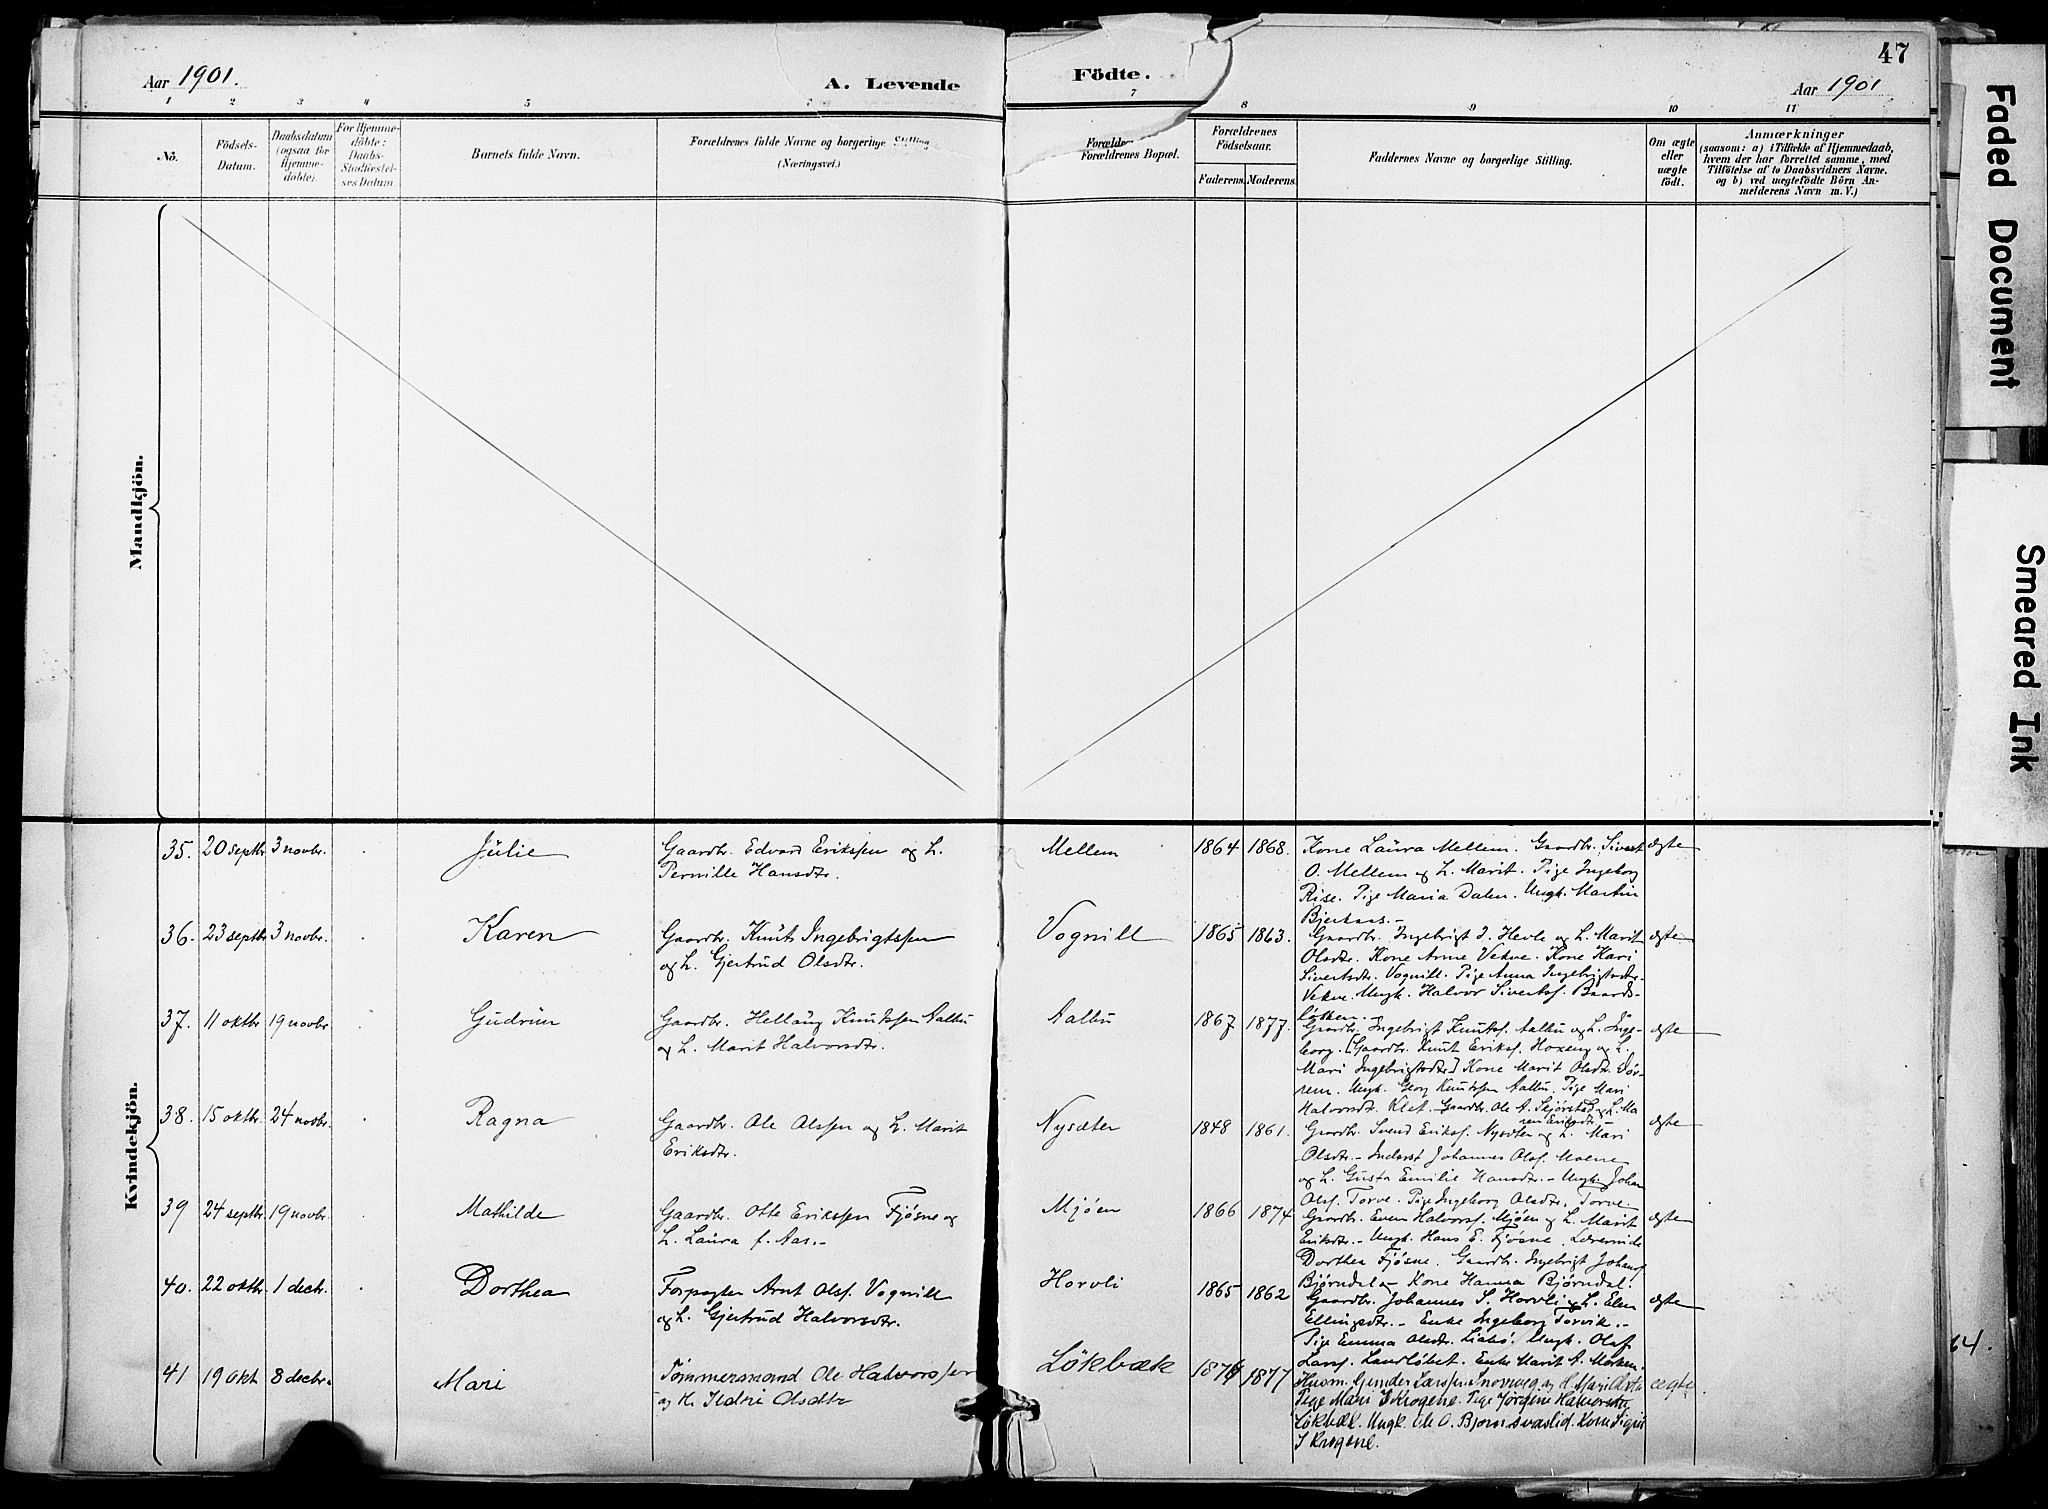 47
Aar 1901.
A. Levende
Födte.
Aar 1901
1 2 3 4 5 7 8 9 10 11
No.
Födsels-
Datum.
Daabsdatum
(ogsaa for
Hjemme-
döbte).
For Hjemme-
döbte:
Daabs-
Stadfæstel-
ses Datum
Barnets fulde Navn.
Forældrenes fulde Navne og borgerlige Stilling
(Næringsvei.)
Forældrenes Bopæl.
Forældrenes
Födselsaar.
Faderens. Moderens.
Faddernes Navne og borgerlige Stilling.
Om ægte
eller
uægte
födt.
Anmærkninger
(saasom: a) i Tilfælde af Hjemmedaab,
hvem der har forrettet samme, med
Tilföielse af to Daabsvidners Navne.
og b) ved uegtefödte Börn An-
melderens Navn m. V.)
Mandkjön.
Kvindekjön.
35. 20 septbr. 3 novbr. Julie
Gaardbr. Edvard Erikssen og h.
Pernille Hansdtr.
Mellem 1864 1868.
Kone Laura Mellem. Gaardbr. Sivert
O. Mellem og h. Marit. Pige Ingeborg
Rise. Pige Maria Dalen. Ungk. Martin
Bjerkaas.-
ægte
36. 23 septbr 3 novbr. Karen
Gaardbr. Knut Ingebrigtssen
og h. Gjertrud Olsdtr.
Vognill 1865 1863.
Gaardbr. Ingebrigt J. Hevle og h. Marit
Olsdtr. Kone Arne Vekve. Kone Kari
Sivertsdtr. Vognill. Pige Anna Ingebrigtsdtr.
Vekve. Ungk. Halvor Sivertsf. Baards-
løkken.
ægte
37. 11 oktbr 19 novbr. Gudrun
Gaardbr. Hellaug Knutssen Aalbu
og h. Marit Halvorsdtr.
Aalbu 1867 1877.
Gaardbr. Ingebrigt Knutsf. Aalbu og h. Inge-
borg. [Gaardbr. Knut Eriksf. Hoxeng og h.
Mari Ingebrigtsdtr.] Kone Marit Olsdtr. Dör-
rem. Ungk. Georg Knutssen Aalbu. Pige Mari
Halvorsdtr. Klet. Gaardbr. Ole A. Skjørstad og h. Ma
ren Eriksdtr.-
ægte
38. 15 oktbr. 24 novbr. Ragna
Gaardbr. Ole Olssen og h. Marit
Eriksdtr.
Nysæter 1848 1861.
Gaardbr. Svend Eriksf. Nysæter og h. Mari
Olsdtr.- Inderst Johannes Olsf. Moene
og h. Gusta Emilie Hansdtr.- Ungk. Johan
Olsf. Torve. Pige Ingeborg Olsdtr. Torve
ægte
39 24 septbr. 19 novbr. Mathilde
Gaardbr. Otte Erikssen Fjösne og
h. Laura f. Aas.-
Mjöen 1866 1874
Gaardbr. Even Halvorsf. Mjöen og h. Marit
Eriksdtr.- Ungk. Hans E. Fjösne. Lærerinde
Dorthea Fjösne. Gaardbr. Ingebrigt Johansf
Bjørndal.- Kone Hanna Bjørndal.
ægte
40. 22 oktbr. 1 decbr. Dorthea
Forpagter Arnt Olsf. Vognill
og h. Gjertrud Halvorsdtr.
Horvli 1865 1862
Gaardbr. Johannes S. Horvli og h. Elen
Ellingsdtr.- Enke Ingeborg Torvik.-
Pige Emma Olsdtr. Liabö. Ungk. Olaf
Larsf. Landløbet. Enke Marit A. Morken.
ægte
41 19 Okt 8 decbr. Mari
Tömmermand Ole Halvorssen
og H. Ildri Olsdtr
Lökbæk 1874 1877
Husm. Gunder Larssen Snoveeg og H. Mari Olsdtr
Pige Mari S Krogene. Pige Jørgine Halvorsdtr
Lökbæk. Ungk. Ole O. Bjørnsvaslid. Kone Sigrid
S Krogene.
ægte.
64.
Faded Document
Smeared Ink